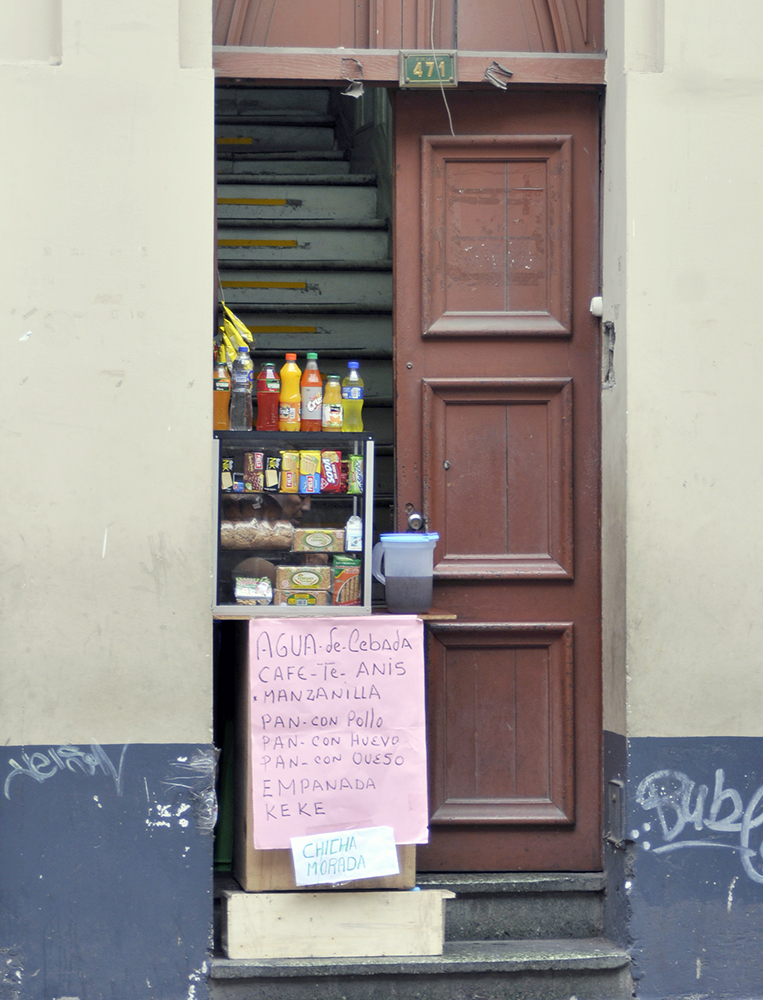 471
SODA
FIELD
FIELD
AGUA-de-Cebada
CAFE-Te-ANIS
MANZANILLA
PAN-CON Pollo
PAN-CON HUEVO
PAN-CON QUESO
EMPANADA
KEKE
CHICHA
MORADA